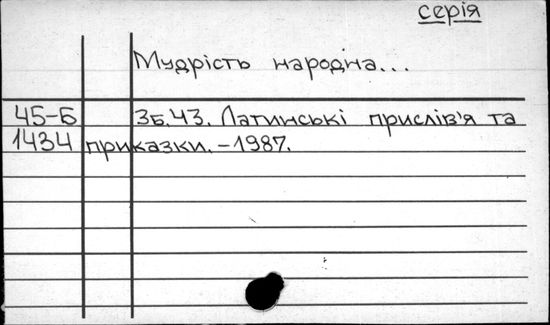 серія
Мудрість народна...
45-Б Зб.43. Латинські прислів'я та
1434 приказки. - 1987.